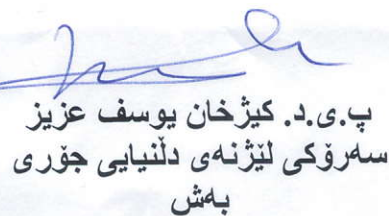 پ.ی.د. کیژخان یوسف عزیز
سەرۆکی لێژنەی دڵنیایی جۆری
بەش